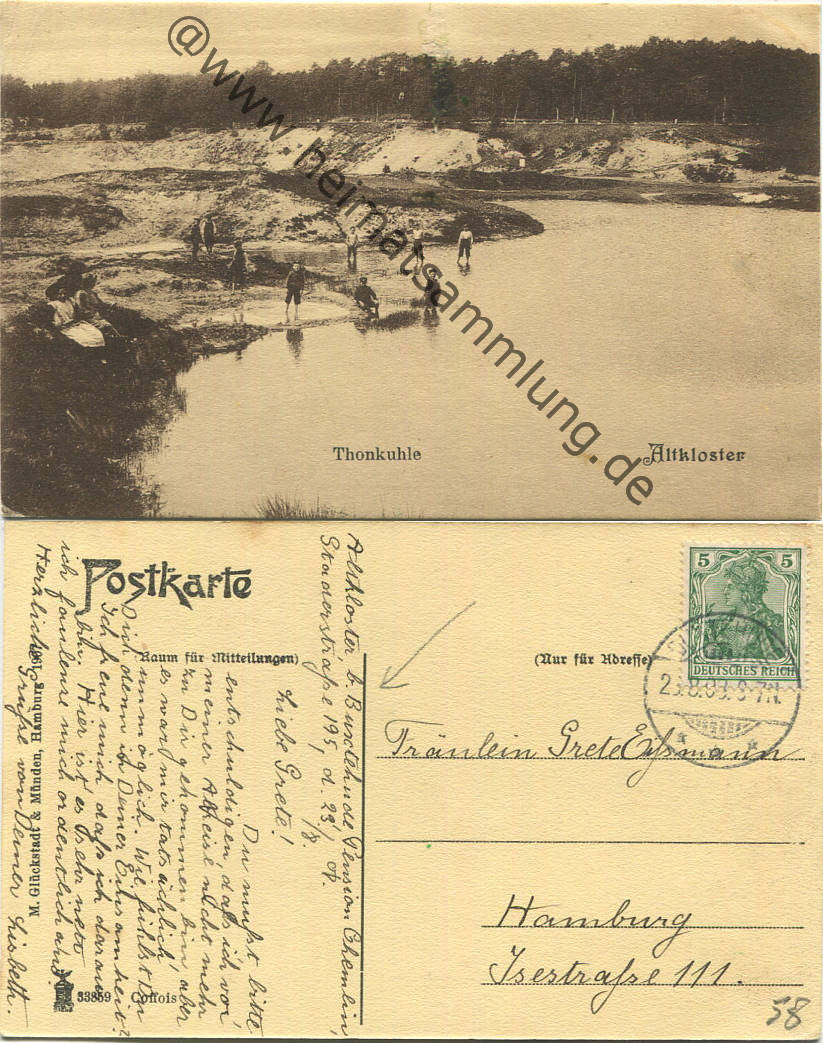 @www.heimatsammlung.de
Thonkuhle
Altkloster
Postkarte
(Raum für Mitteilungen)
(Nur für Adresse)
5 5
DEUTSCHES REICH
Altkloster b. Buxtehude Pension Chemlin,
Staderstraße 195, d. 23/8. 09.
Liebe Grete!
Du mußt bitte
entschuldigen, daß ich vor
meiner Abreise nicht mehr
zu Dir gekommen bin, aber
es war mir tatsächlich
unmöglich. Wie fühlst
Dich denn in Deiner Einsamheit?
Ich freue mich daß ich daran
bin. Hier ist es sehr nett
ich faulenze mich ordentlich aus.
Herzliche Grüße von Deiner Lisbeth.
M. Glückstadt & Münden, Hamburg
33859 Collois
Fräulein Grete
Hamburg
Isestraße 111.
58